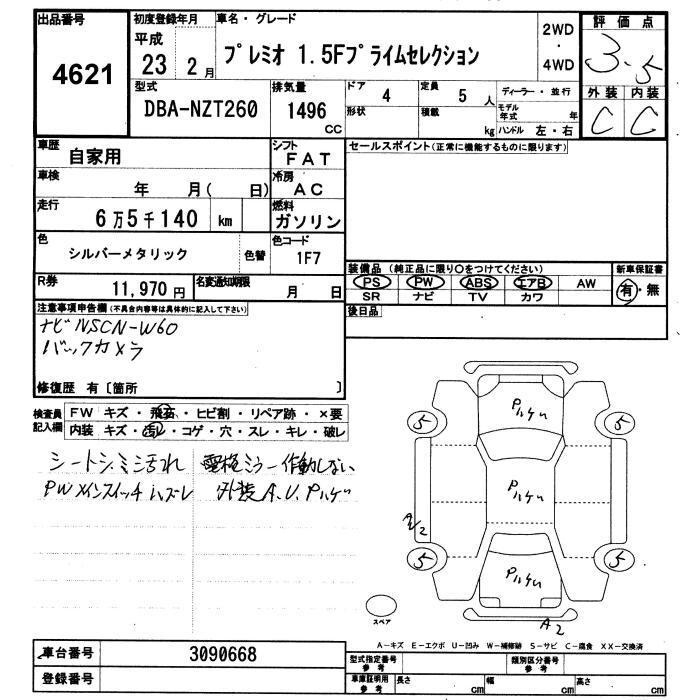 出品番号
4621
初度登録年月
平成
23 2月
車名・グレード
プレミオ 1.5Fプライムセレクション
2WD
・
4WD
評価点
3.5
外装 内装
C C
型式
DBA-NZT260
排気量
1496
CC
ドア 4
形状
定員 5 人
積載 kg
ディーラー・並行
モデル年式 年
ハンドル 左・右
車歴 自家用
シフト FAT
車検 年 月( 日)
冷房 AC
走行 6万5千140 km
燃料 ガソリン
色 シルバーメタリック
色替
色コード 1F7
R券 11,970円
名変通知期限 月 日
セールスポイント(正常に機能するものに限ります)
装備品 (純正品に限り○をつけてください)
新車保証書
PS PW ABS エアB AW
有・無
SR ナビ TV カワ
後日品
注意事項申告欄(不具合内容等は具体的に記入して下さい)
ナビNSCN-W60
バックカメラ
修復歴 有〔箇所 〕
検査員記入欄
FW キズ・飛石・ヒビ割・リペア跡・×要
内装 キズ・汚レ・コゲ・穴・スレ・キレ・破レ
シートシミ 汚れ 電格ミラー作動しない
PWメインスイッチハズレ 外装A.U.Pハゲ
Pハゲ
5 5
Pハゲ
A/2
5 5
Pハゲ
スペア
A2
A-キズ E-エクボ U-凹み W-補修跡 S-サビ C-腐食 XX-交換済
車台番号 3090668
登録番号
型式指定番号 参考
類別区分番号 参考
車庫証明用 参考
長さ cm
幅 cm
高さ cm